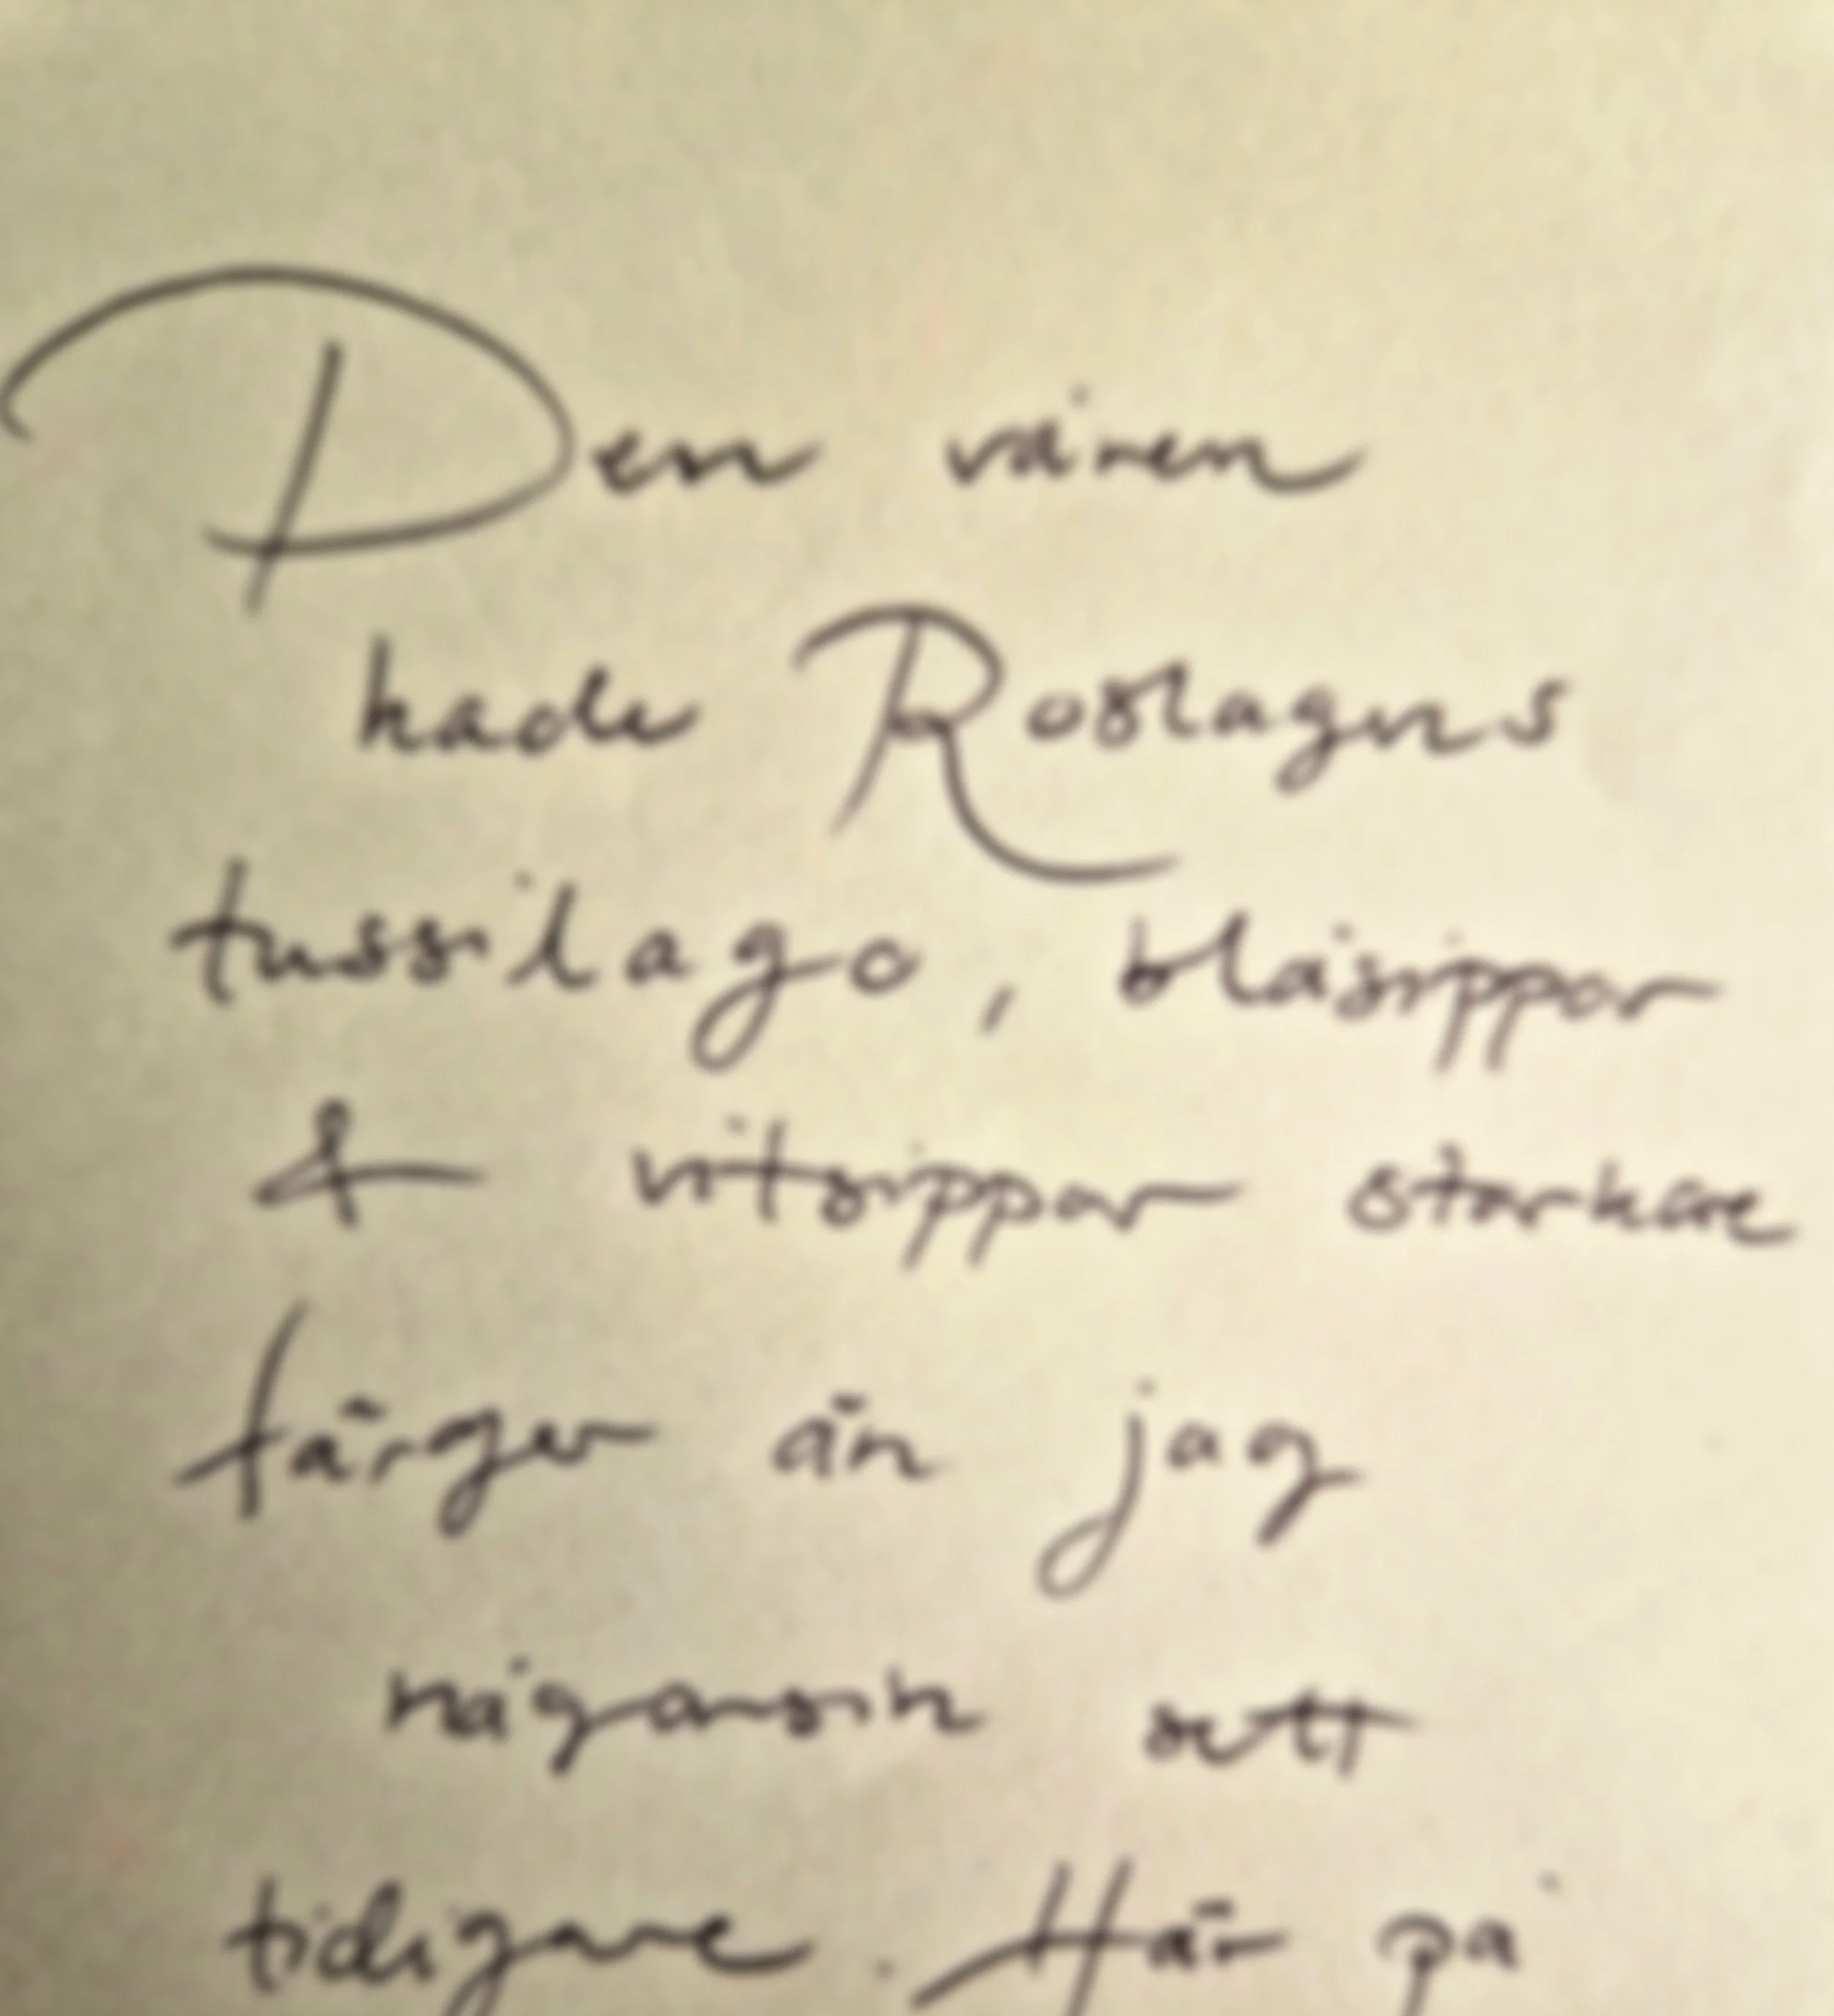 Den våren
hade Roslagens
tussilago, blåsippor
& vitsippor starkare
färger än jag
någonsin sett
tidigare. Här på